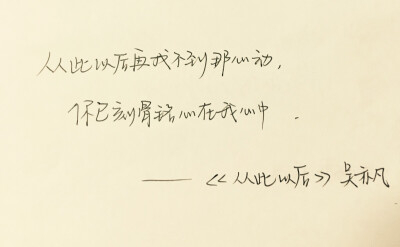 从此以后再找不到那心动,
你已刻骨铭心在我心中.
——《从此以后》吴亦凡